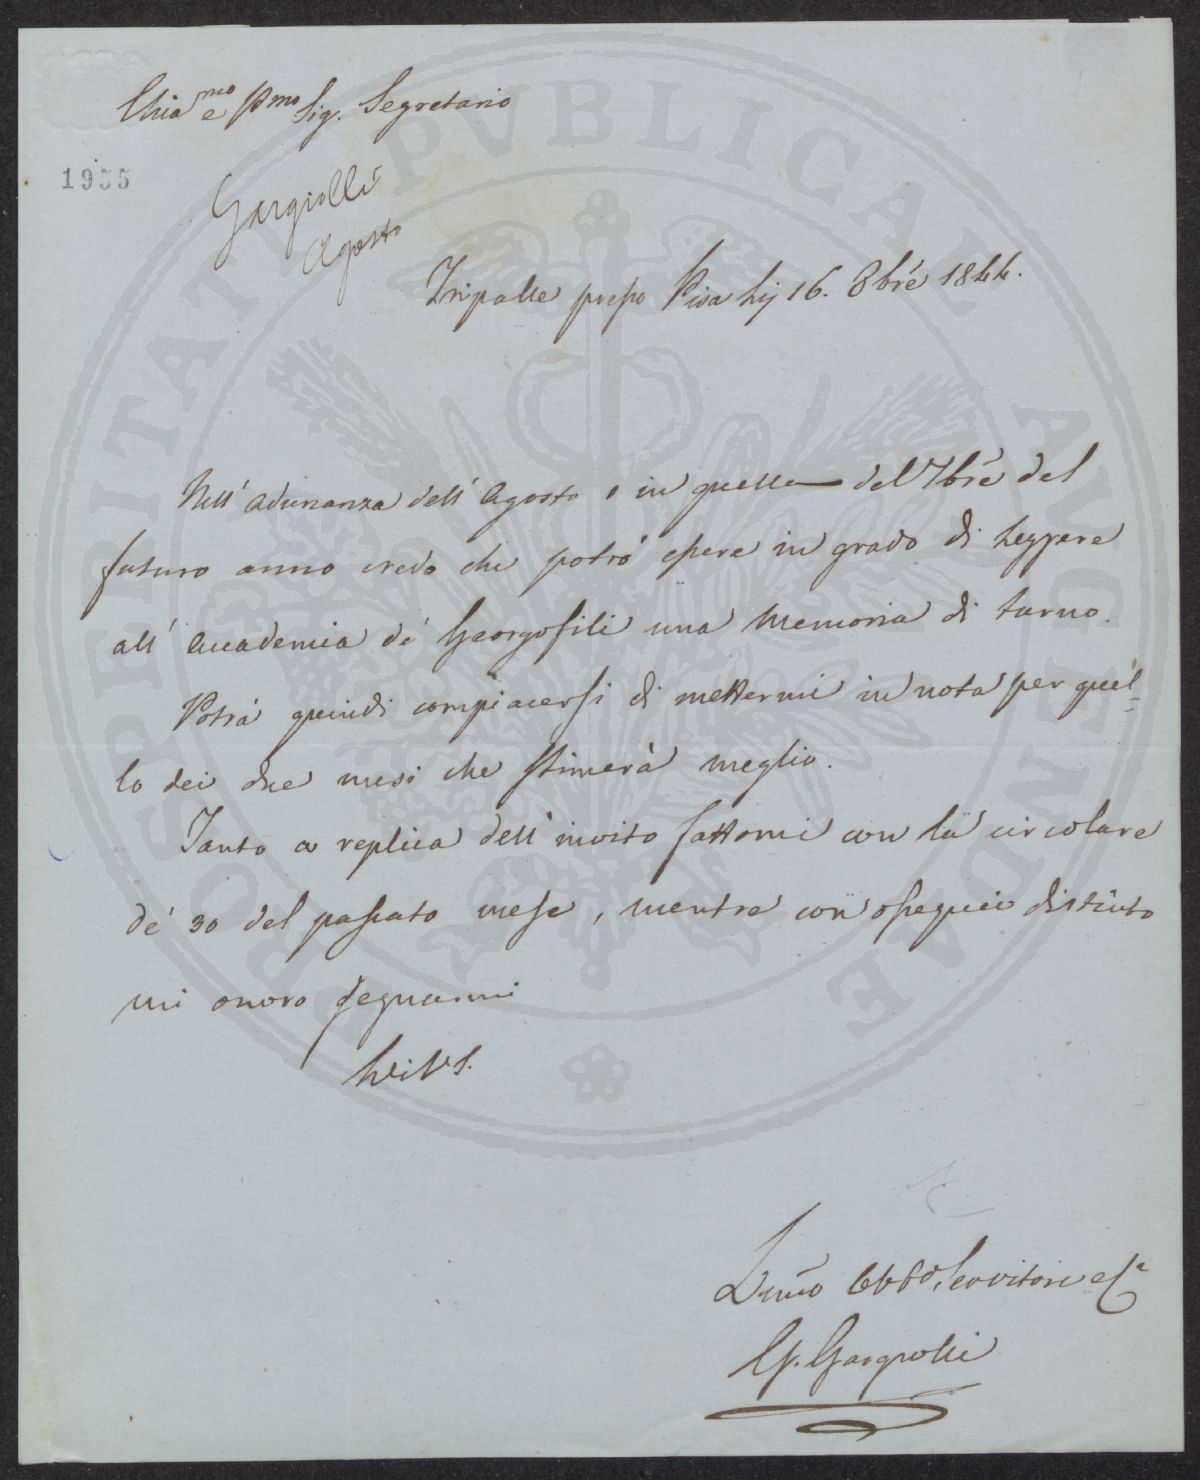 Chia.mo e P.mo Sig. Segretario
1955
Gargiolli
Agosto
Tripalle presso Pisa li 16. 8bre 1844.
Nell' adunanza dell' Agosto o in quella del 7bre del
futuro anno credo che potrò essere in grado di leggere
all' Accademia de' Georgofili una Memoria di turno.
Potrà quindi compiacersi di mettermi in nota per quel=
lo dei due mesi che stimerà meglio.
Tanto a replica dell' invito fattomi con la circolare
de' 30 del passato mese, mentre con ossequio distinto
mi onoro segnarmi
Di V.S.
Dmo Obbo Servitore
G. Gargiolli
PROSPERITATI PVBLICAE AVGENDAE